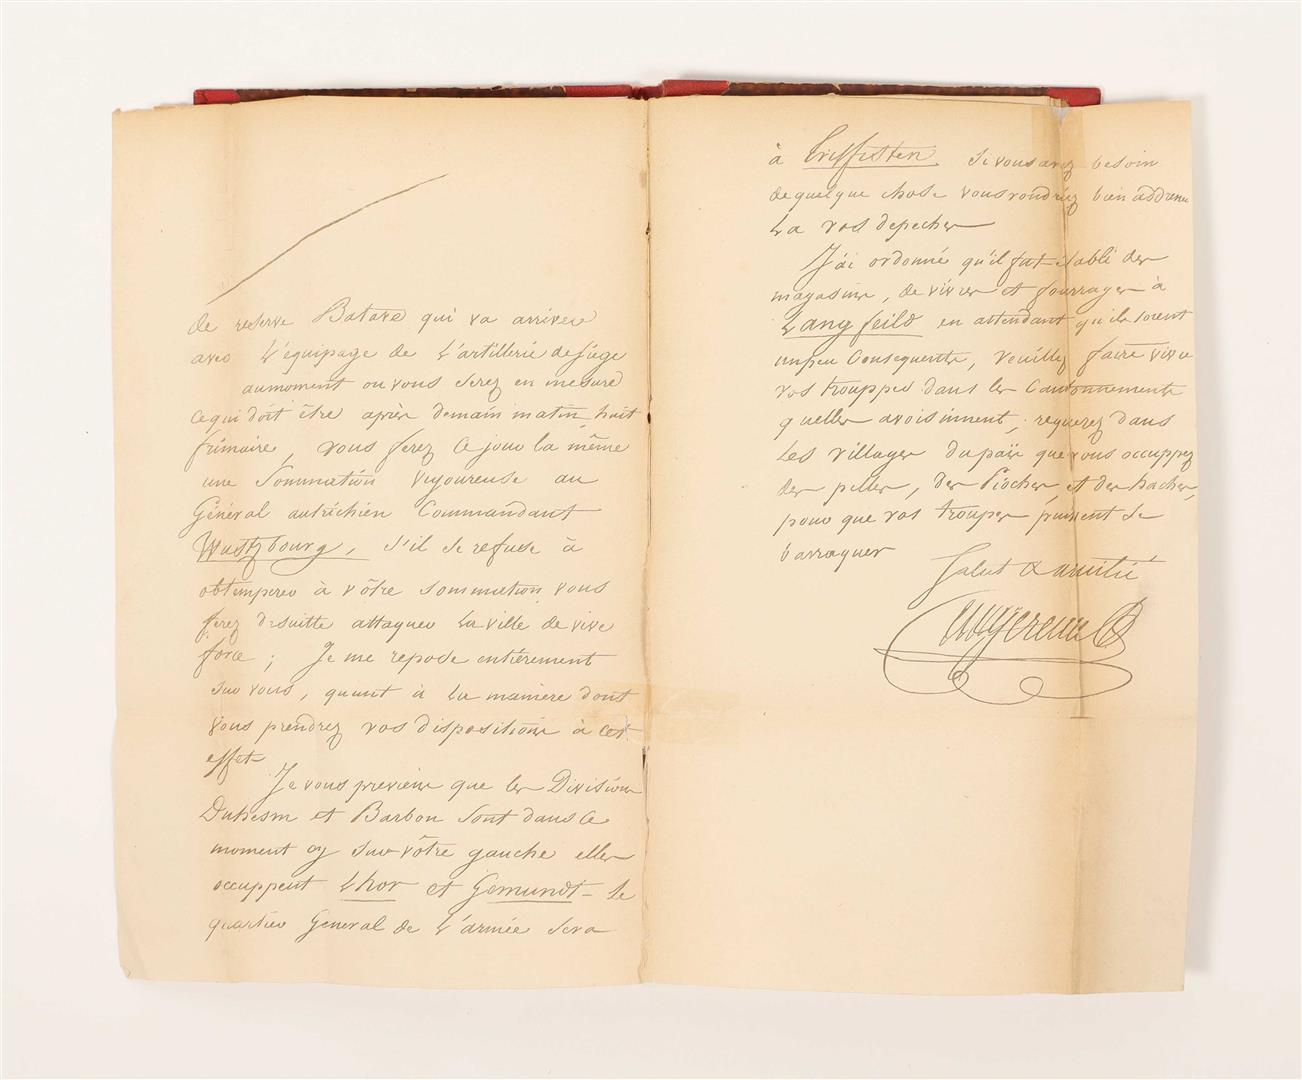 de reserve Batave qui va arriver
avec L'équipage de L'artillerie de siége
au moment ou vous serez en mesure
ce qui doit être après demain matin huit
frimaire, vous ferez ce jour la même
une Sommation vigoureuse au
Général autrichien Commandant
Wurtzbourg, s'il se refuse à
obtemperer à vôtre sommation vous
ferez de suitte attaquer La ville de vive
force; Je me repose entiérement
sur vous, quant à La maniere dont
vous prendrez vos dispositions à cet
effet
Je vous previens que les Divisions
Duhesm et Barbou sont dans ce
moment cy sur vôtre gauche elles
occuppent Lhor et Gemundt - le
quartier Général de L'armée sera
à si vous avez besoin
de quelque chose vous voudrez bien addresser
La vos depeches
J'ai ordonné qu'il fut établi des
magasins, de vivres et fourrages à
Langfeild en attendant qu'ils soient
un peu Consequents, veuillez faire vivre
vos trouppes dans les Cantonnements
quelles avoisinnent, requerez dans
Les villages du païs que vous occuppez
des pelles, des Pioches, et des haches,
pour que vos troupes puissent se
barraquer
Salut & amitié
Augereau